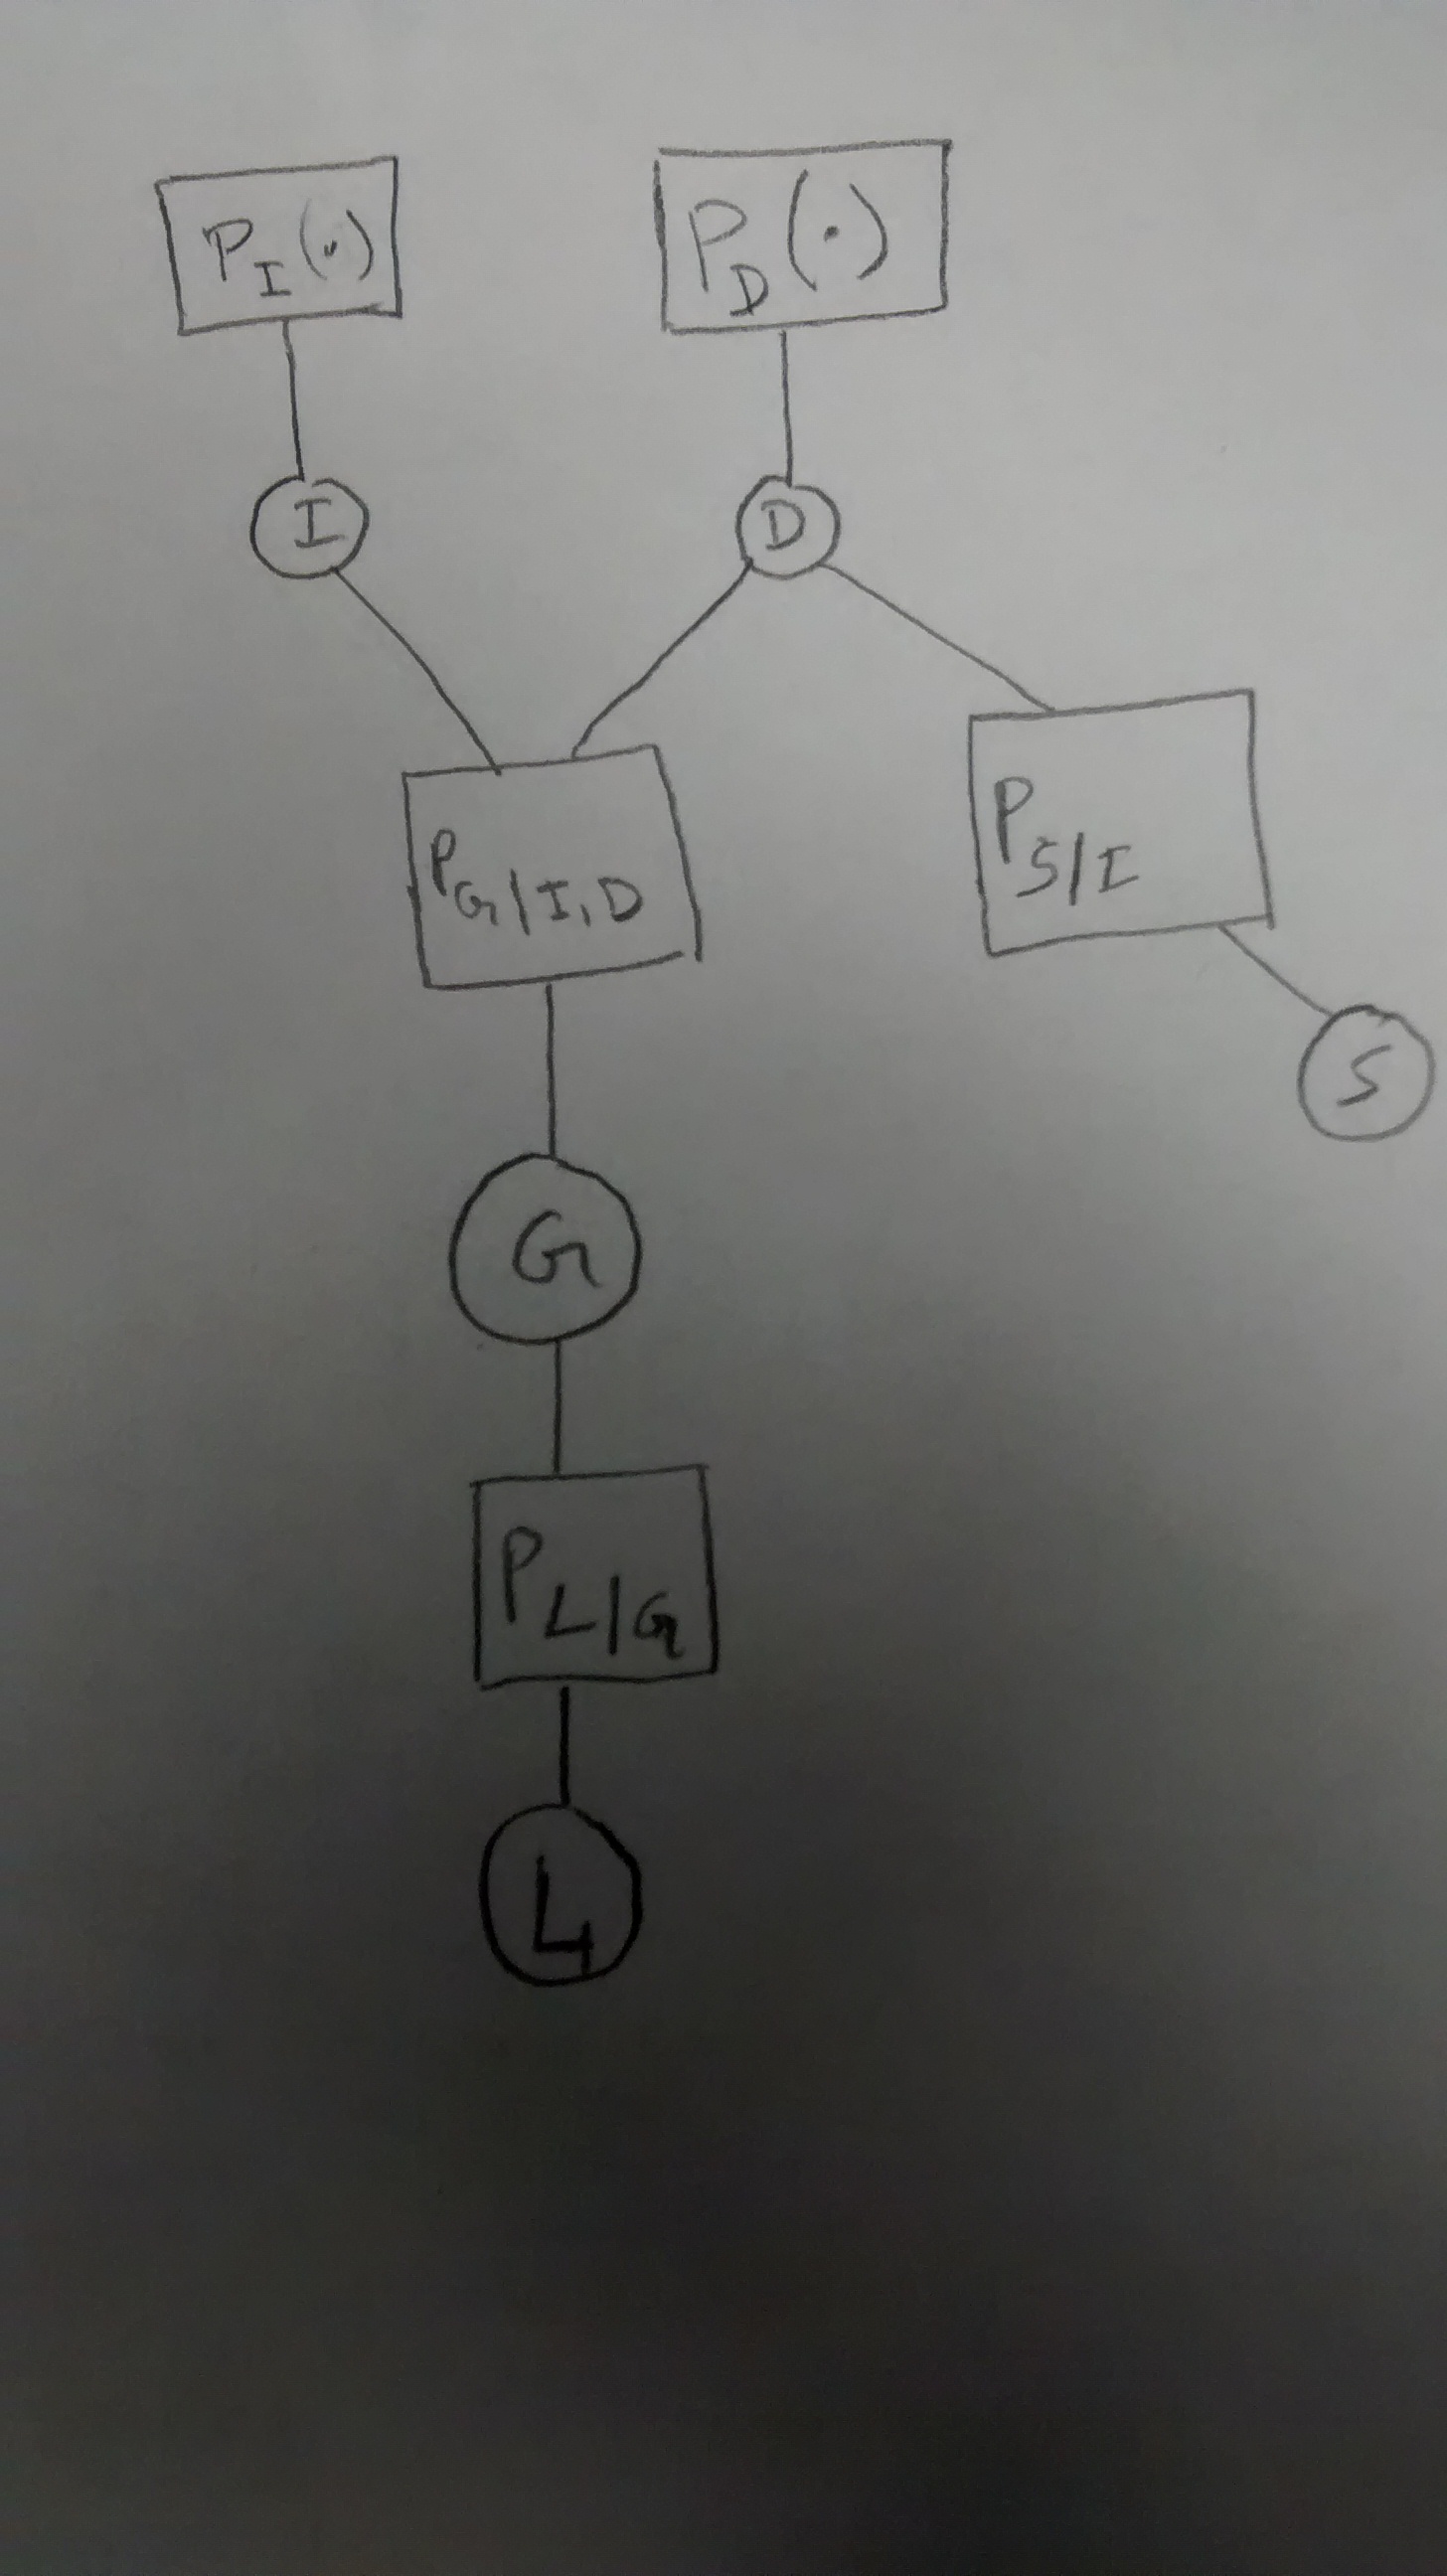 P_I(·)
P_D(·)
I
D
P_G|I,D
P_S|I
S
G
P_L|G
L